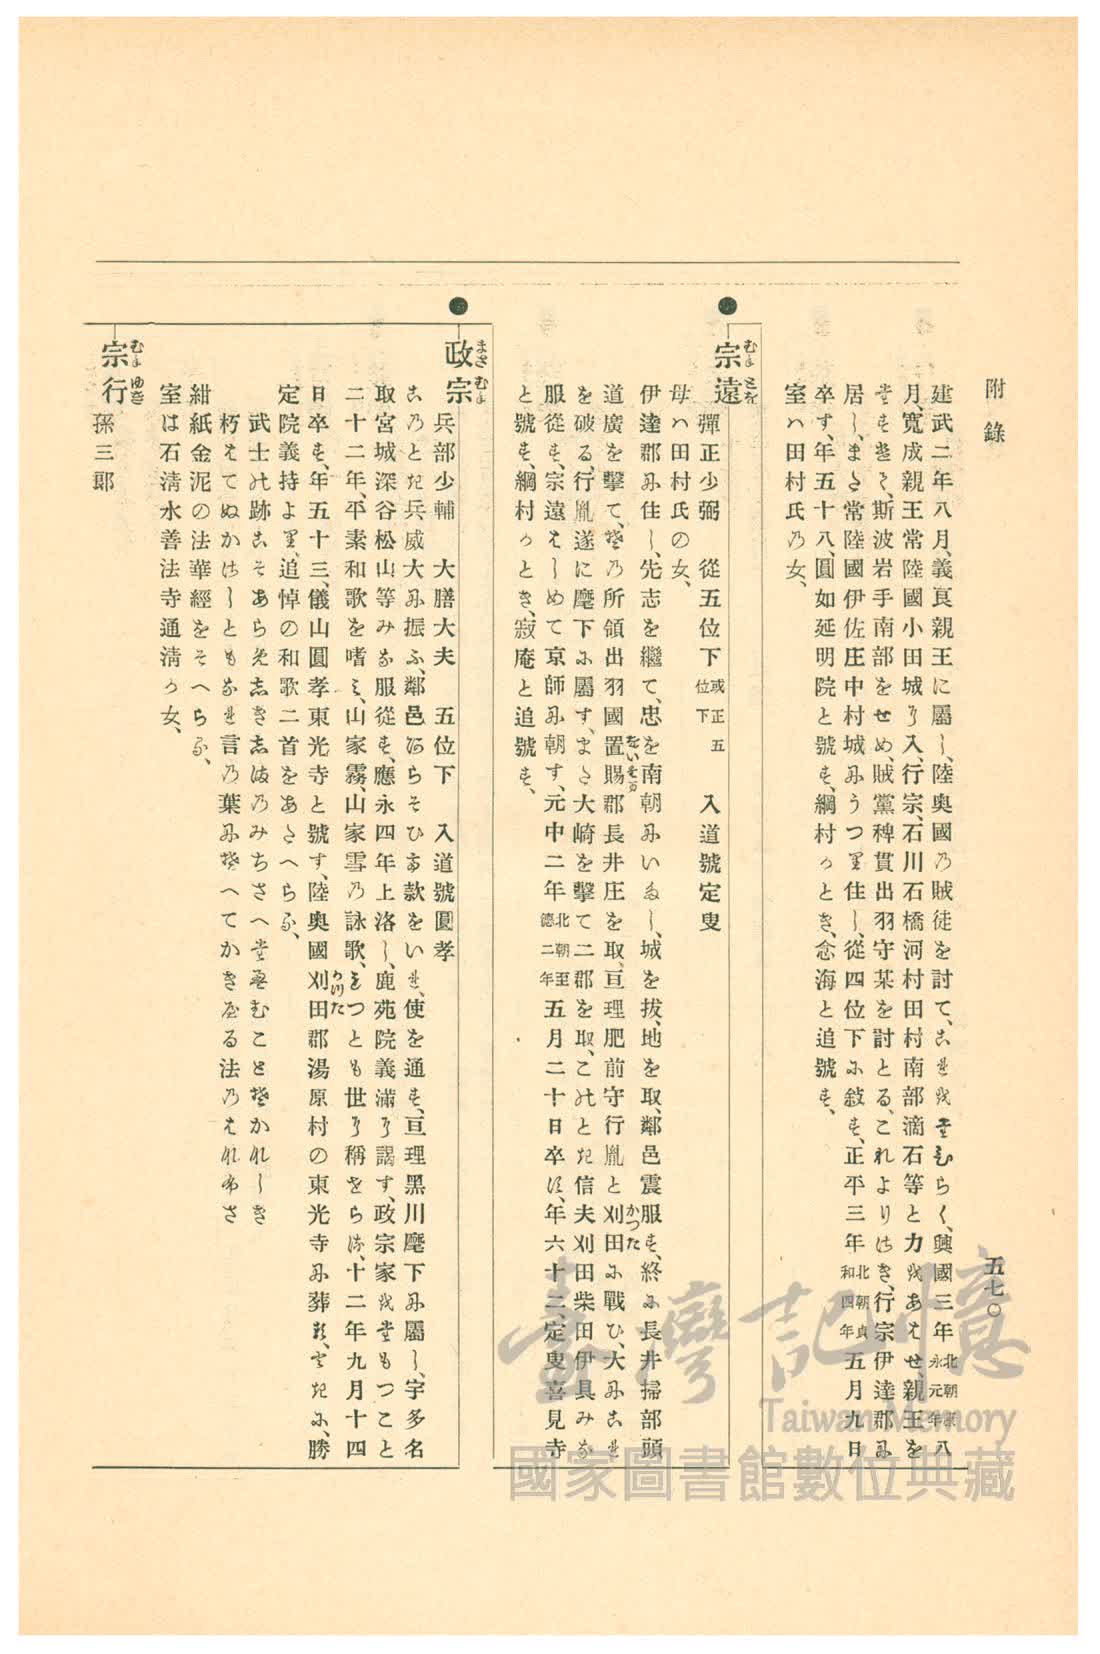 附錄
五七〇
建武二年八月、義良親王に屬し、陸奧國の賊徒を討て、これをたひらく、興國三年北朝康永元年八
月、寬成親王常陸國小田城に入、行宗、石川石橋河村田村南部滴石等と力をあはせ、親王を
たすけまし、斯波岩手南部をせめ、賊黨稗貫出羽守某を討とる、これよりさき、行宗伊達郡に
居し、また常陸國伊佐庄中村城にうつり住し、從四位下に敍す、正平三年北朝貞和四年五月九日
卒す、年五十八、圓如延明院と號す、綱村のとき、念海と追號す、
室ハ田村氏の女、
宗遠 むねとを 彈正少弼 從五位下 或正五位下 入道號定叟
母ハ田村氏の女、
伊達郡に住し、先志を繼て、忠を南朝にいたし、城を拔、地を取、鄰邑震服す、終に長井掃部頭
道廣を擊て、その所領出羽國置賜郡長井庄を取、亘理肥前守行胤と刈田に戰ひ、大にこれ
を破る、行胤遂に麾下に屬す、また大崎を擊て二郡を取、このとき信夫刈田柴田伊具みな
服從す、宗遠はしめて京師に朝す、元中二年北朝至德二年五月二十日卒す、年六十二、定叟喜見寺
と號す、綱村のとき、寂庵と追號す、
政宗 まさむね 兵部少輔 大膳大夫 五位下 入道號圓孝
このとき兵威大に振ふ、鄰邑あらそひて款をいれ、使を通す、亘理黑川麾下に屬し、宇多名
取宮城深谷松山等みな服從す、應永四年上洛し、鹿苑院義滿に謁す、政宗家をたもつこと
二十二年、平素和歌を嗜み、山家霧、山家雪の詠歌、もつとも世に稱せらる、十二年九月十四
日卒す、年五十三、儀山圓孝東光寺と號す、陸奧國刈田郡湯原村の東光寺に葬る、ときに、勝
定院義持より、追悼の和歌二首をあたへらる、
武士の跡こそあらめしきしまのみちさへたえむことそかなしき
朽はてぬかはしともなれ言の葉にそへてかきをる法のはなふさ
紺紙金泥の法華經をそへらる、
室は石淸水善法寺通淸の女、
宗行 むねゆき 孫三郞
臺灣記憶
Taiwan Memory
國家圖書館數位典藏